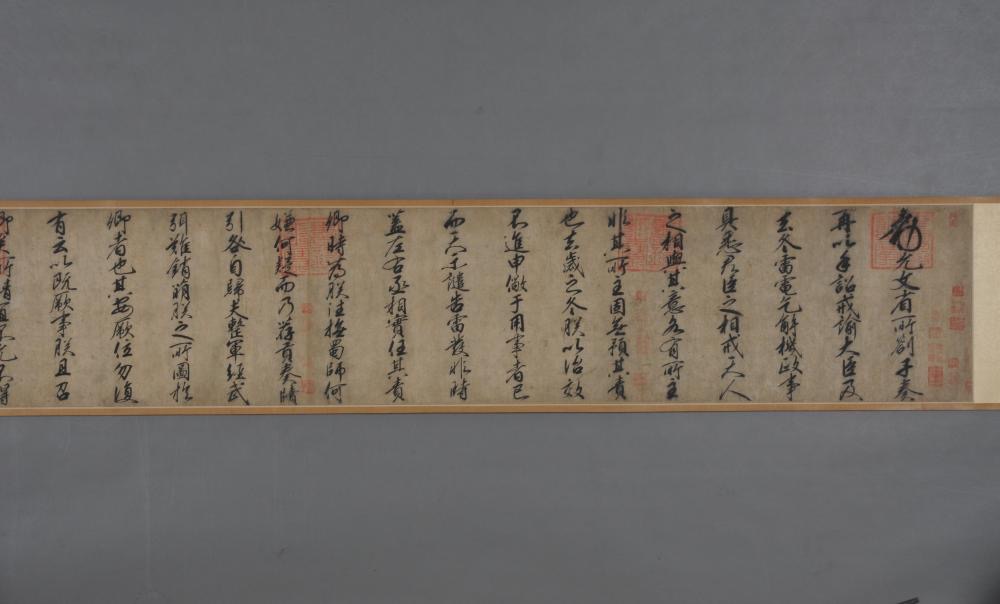 敕允文省所劄子奏
再以手詔戒諭大臣及
去冬雷電乞解機政事
具悉君臣之相戒天人
之相與其意各有所主
非其所主固無預其責
也去歲之冬朕以治效
不進申儆于用事者已
而天示譴告雷發非時
蓋左右丞相實任其責
卿時為朕往撫蜀師何
嫌何疑而乃荐貢奏牘
引咎自歸夫整軍經武
弭難銷萌朕之所圖惟
卿者也其安厥位勿復
有云以既厥事朕且召
卿矣所請宜不允不得